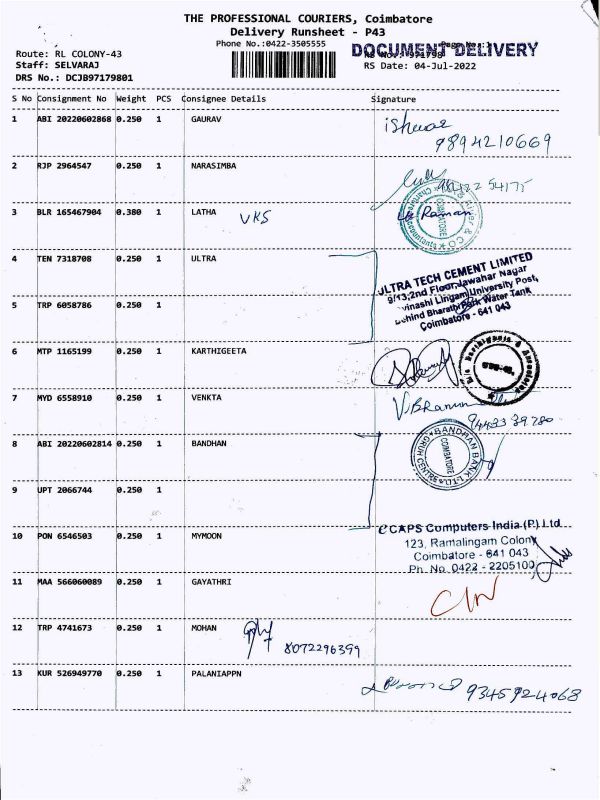 THE PROFESSIONAL COURIERS, Coimbatore
Delivery Runsheet - P43
Phone No.:0422-3505555
DOCUMENT DELIVERY
Route: RL COLONY-43
Staff: SELVARAJ
RS Date: 04-Jul-2022
DRS No.: DCJB97179801
S No Consignment No Weight PCS Consignee Details Signature
1 ABI 20220602868 0.250 1 GAURAV
9894210669
2 RJP 2964547 0.250 1 NARASIMBA
3 BLR 165467904 0.380 1 LATHA VKS Raman
4 TEN 7318708 0.250 1 ULTRA
ULTRA TECH CEMENT LIMITED
9/13,2nd Floor,Jawahar Nagar
Avinashi Lingam University Post,
Behind Bharathi Park Water Tank
Coimbatore - 641 043
5 TRP 6058786 0.250 1
6 MTP 1165199 0.250 1 KARTHIGEETA
7 MYD 6558910 0.250 1 VENKTA
8 ABI 20220602814 0.250 1 BANDHAN
BANDHAN BANK LTD.
GRUH CENTRE
COIMBATORE
9 UPT 2066744 0.250 1
10 PON 6546503 0.250 1 MYMOON
eCAPS Computers India (P) Ltd
123, Ramalingam Colony
Coimbatore - 641 043
Ph. No. 0422 - 2205100
11 MAA 566060089 0.250 1 GAYATHRI
12 TRP 4741673 0.250 1 MOHAN
8072296399
13 KUR 526949770 0.250 1 PALANIAPPN
9345924068